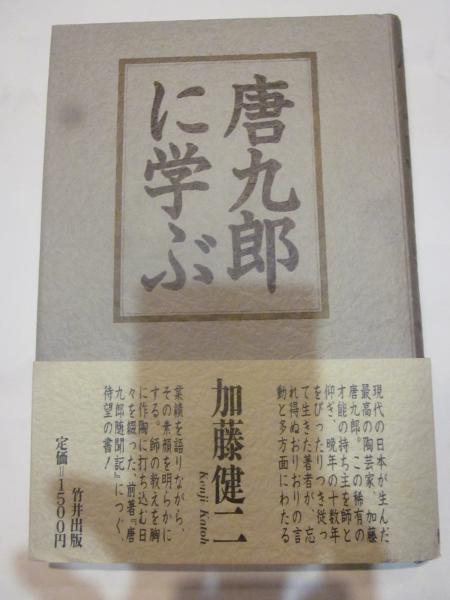 唐九郎
に学ぶ
現代の日本が生んだ
最高の陶芸家、加藤
唐九郎。この稀有の
才能の持ち主を師と
仰ぎ、晩年の十数年
をぴったりつき従っ
て生きた著者が、忘
れ得ぬおりおりの言
動と多方面にわたる
加藤健二
Kenji Katoh
業績を語りながら、
その素顔を明らかに
する。師の教えを胸
に作陶に打ち込む日
々を綴った、前著『唐
九郎随聞記』につぐ、
待望の書!
竹井出版
定価=1500円